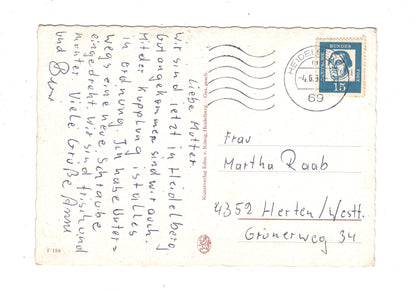 Liebe Mutter
Wir sind jetzt in Heidelberg.
Gut angekommen sind wir auch.
Mit der Kupplung ist alles
in Ordnung. Ich habe unter=
wegs eine neue Schraube
eingedreht. Wir sind frisch und
munter. Viele Grüße Anni
und
Kunstverlag Edm. v. König, Heidelberg. Ges. gesch.
F 188
HEIDEL
69
15
Frau
Martha Raab
4352 Herten/Westf.
Grünerweg 34